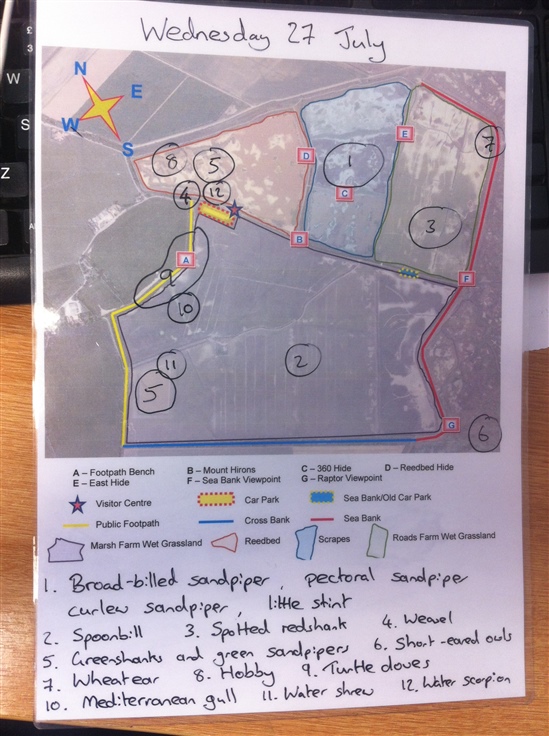 Wednesday 27 July
N
E
W
S
8
5
4
12
1
7
3
9
10
11
5
2
6
A
B
C
D
E
F
G
A – Footpath Bench B – Mount Hirons C – 360 Hide D – Reedbed Hide
E – East Hide F – Sea Bank Viewpoint G – Raptor Viewpoint
Visitor Centre Car Park Sea Bank/Old Car Park
Public Footpath Cross Bank Sea Bank
Marsh Farm Wet Grassland Reedbed Scrapes Roads Farm Wet Grassland
1. Broad-billed sandpiper, pectoral sandpiper
curlew sandpiper, little stint
2. Spoonbill 3. Spotted redshank 4. Weasel
5. Greenshanks and green sandpipers 6. Short-eared owls
7. Wheatear 8. Hobby 9. Turtle doves
10. Mediterranean gull 11. Water shrew 12. Water scorpion